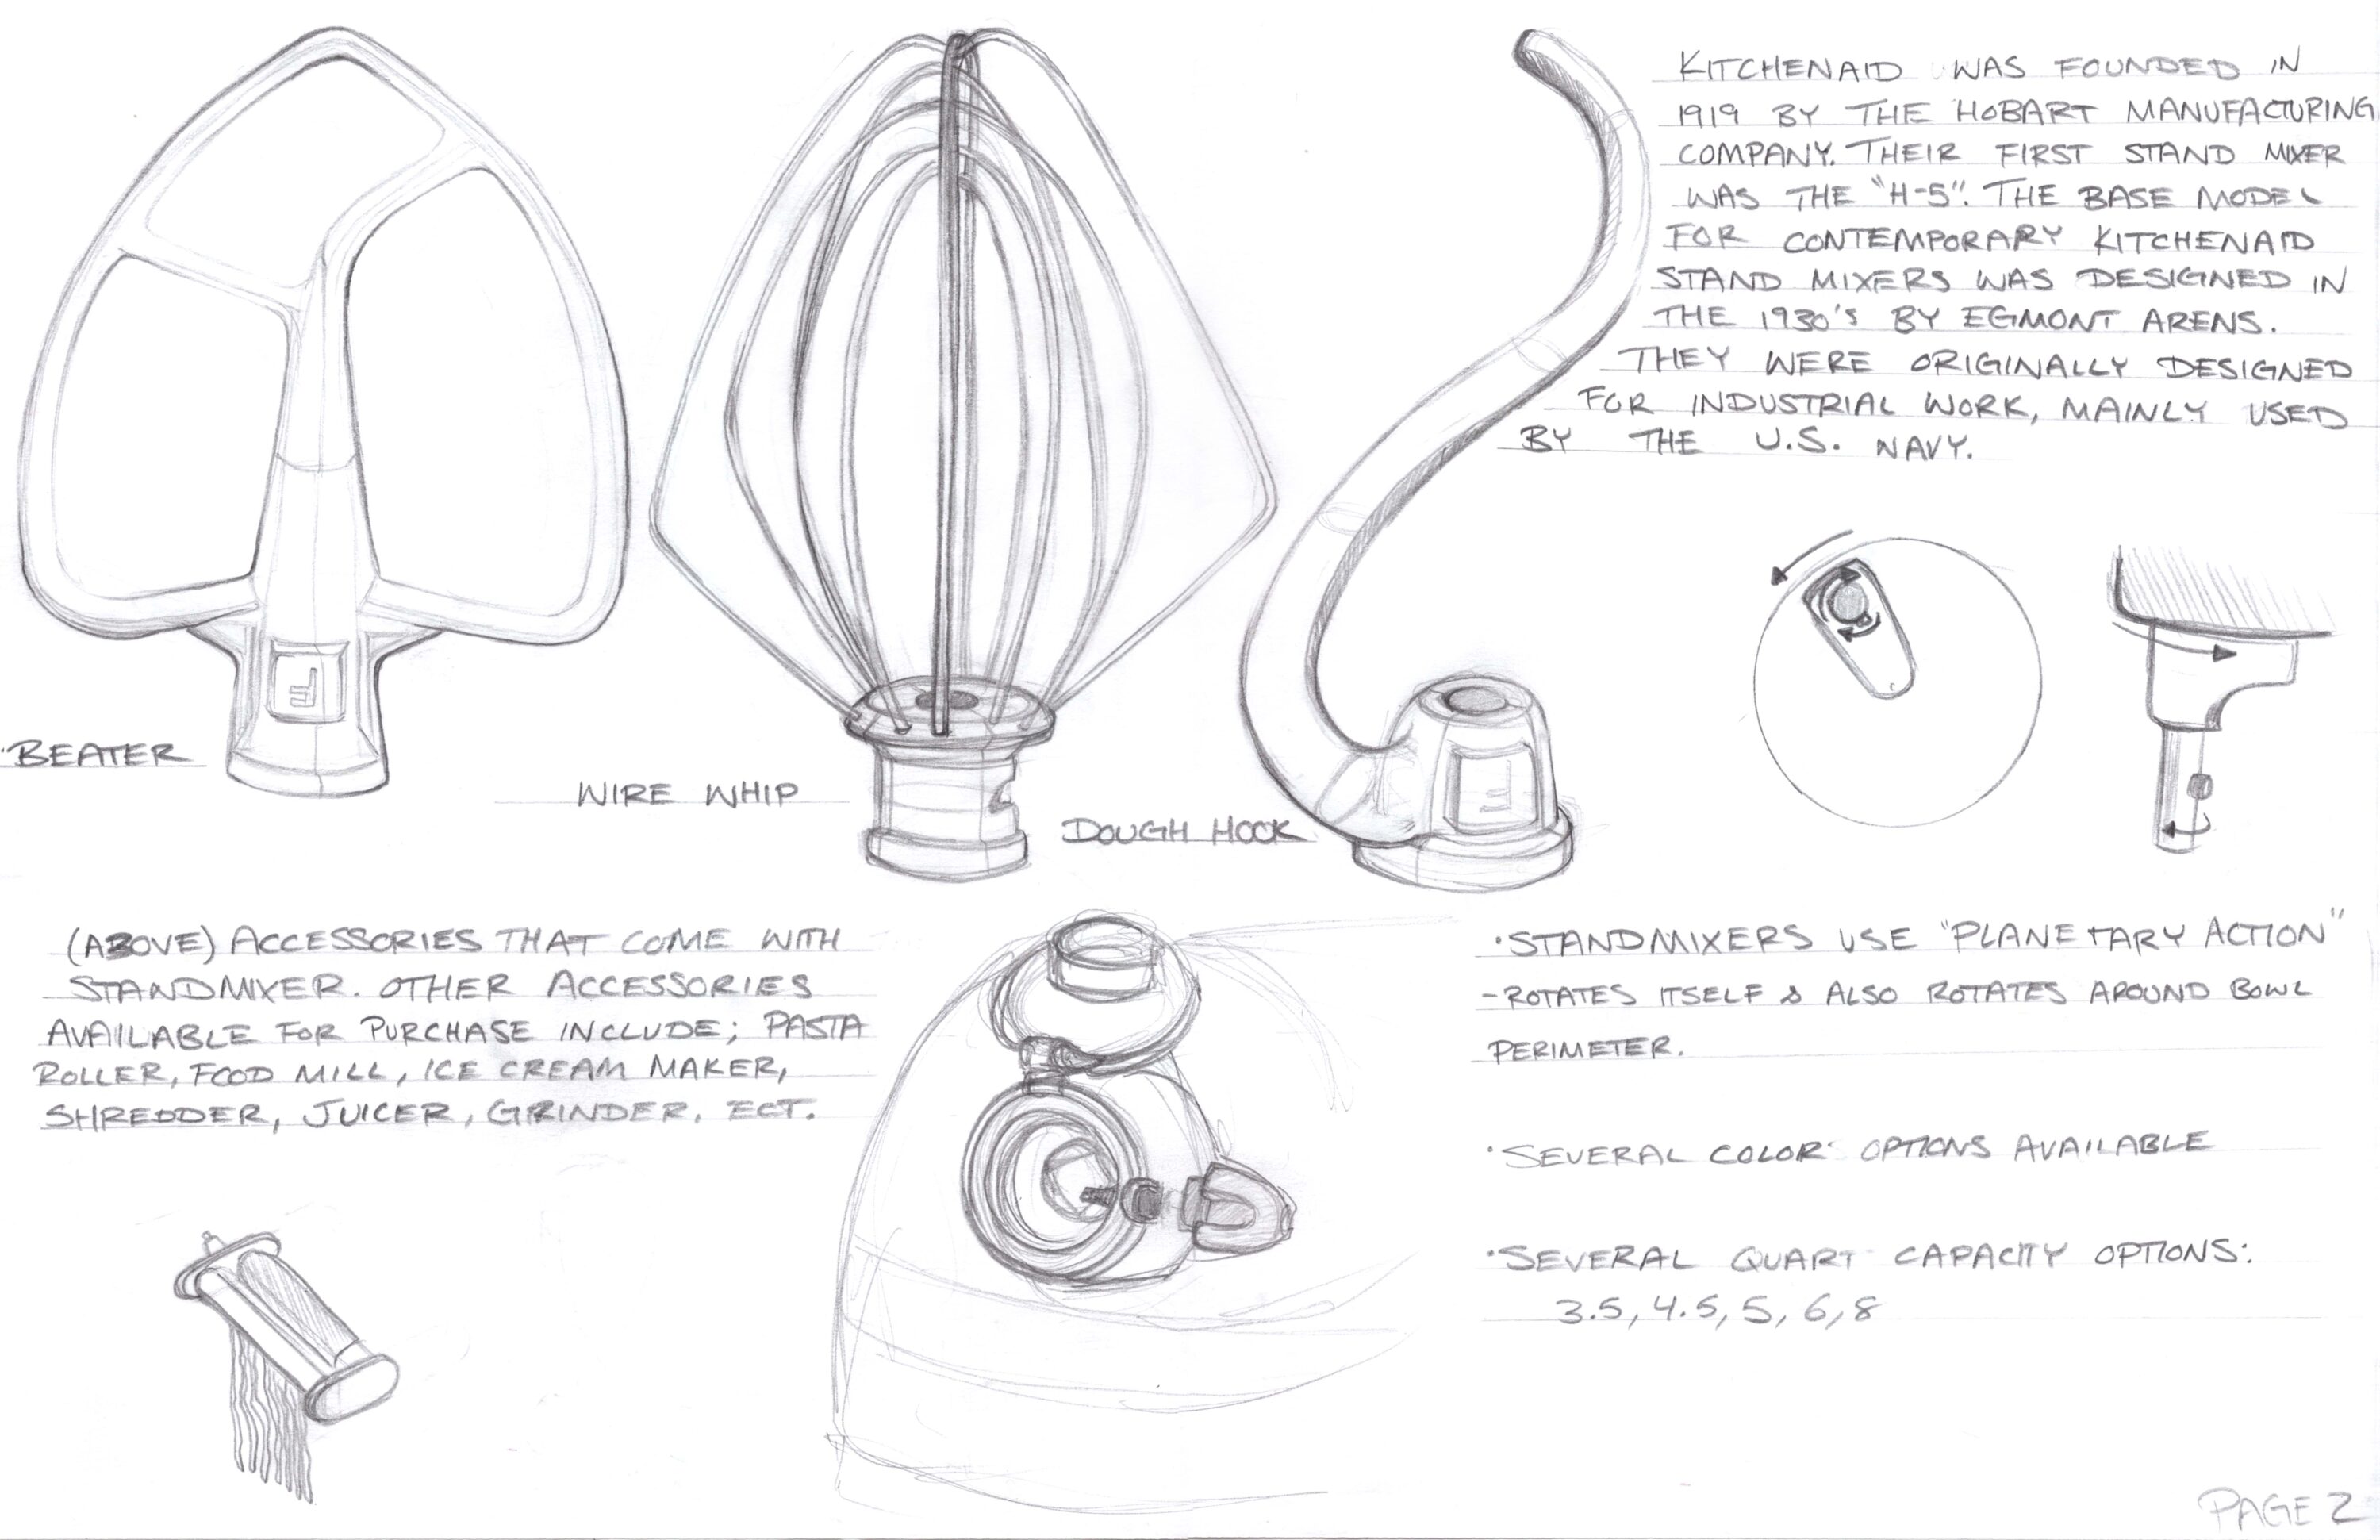 KITCHENAID WAS FOUNDED IN
1919 BY THE HOBART MANUFACTURING
COMPANY. THEIR FIRST STAND MIXER
WAS THE "H-5". THE BASE MODEL
FOR CONTEMPORARY KITCHENAID
STAND MIXERS WAS DESIGNED IN
THE 1930's BY EGMONT ARENS.
THEY WERE ORIGINALLY DESIGNED
FOR INDUSTRIAL WORK, MAINLY USED
BY THE U.S. NAVY.
·BEATER
WIRE WHIP
DOUGH HOOK
(ABOVE) ACCESSORIES THAT COME WITH
STANDMIXER. OTHER ACCESSORIES
AVAILABLE FOR PURCHASE INCLUDE; PASTA
ROLLER, FOOD MILL, ICE CREAM MAKER,
SHREDDER, JUICER, GRINDER, ECT.
·STANDMIXERS USE "PLANETARY ACTION"
-ROTATES ITSELF & ALSO ROTATES AROUND BOWL
PERIMETER.
·SEVERAL COLOR OPTIONS AVAILABLE
·SEVERAL QUART CAPACITY OPTIONS:
3.5, 4.5, 5, 6, 8
PAGE 2